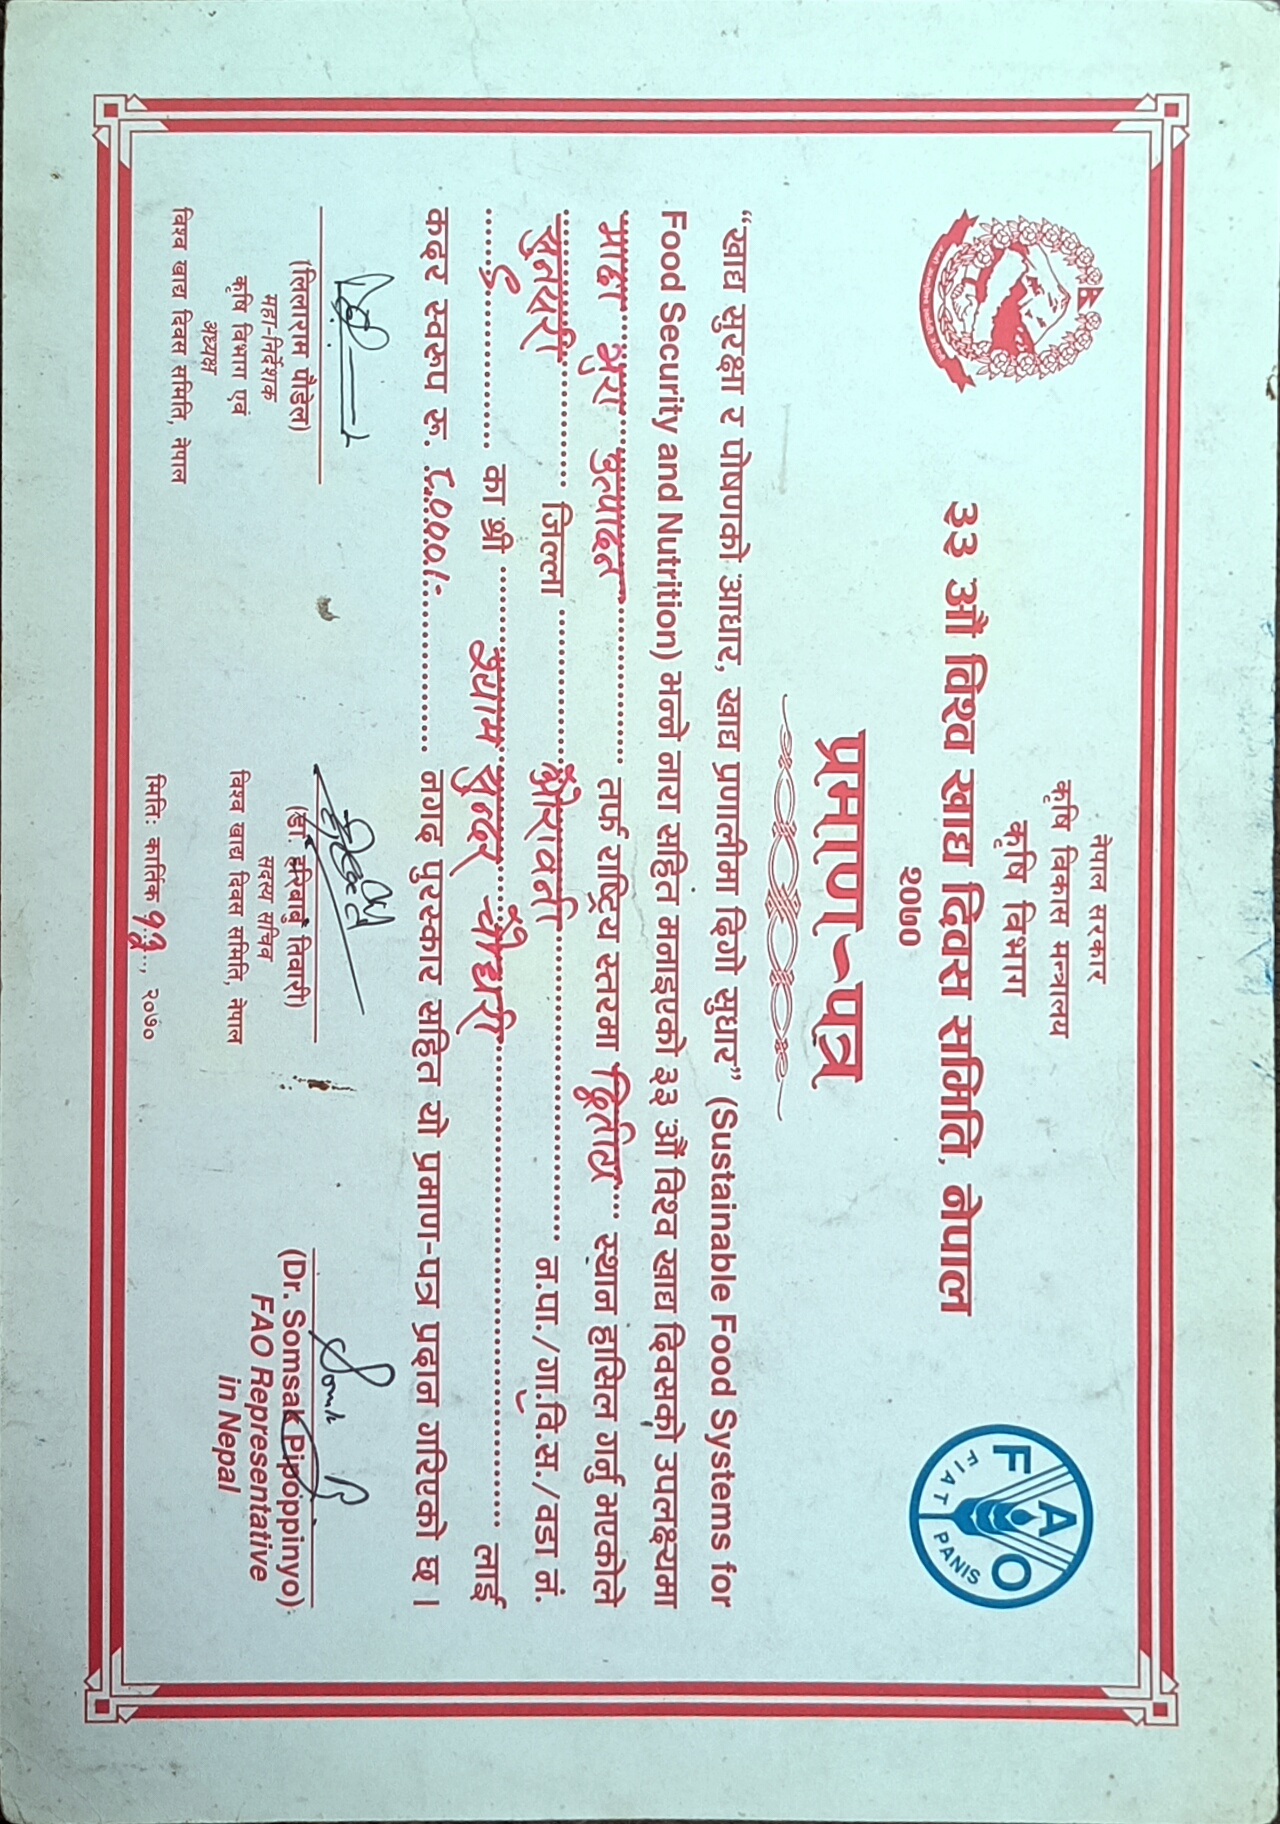 नेपाल सरकार
कृषि विकास मन्त्रालय
कृषि विभाग
३३ औं विश्व खाद्य दिवस समिति, नेपाल
२०७०
F A O
FIAT PANIS
प्रमाण-पत्र
“खाद्य सुरक्षा र पोषणको आधार, खाद्य प्रणालीमा दिगो सुधार” (Sustainable Food Systems for
Food Security and Nutrition) भन्ने नारा सहित मनाइएको ३३ औं विश्व खाद्य दिवसको उपलक्ष्यमा
माछा भुरा उत्पादन तर्फ राष्ट्रिय स्तरमा द्वितीय स्थान हासिल गर्नु भएकोले
सुनसरी जिल्ला औरावनी न.पा./गा.वि.स./वडा नं.
का श्री श्याम सुन्दर चौधरी लाई
कदर स्वरुप रू. ८०००।- नगद पुरस्कार सहित यो प्रमाण-पत्र प्रदान गरिएको छ ।
(लिलाराम पौडेल)
महा-निर्देशक
कृषि विभाग एवं
अध्यक्ष
विश्व खाद्य दिवस समिति, नेपाल
(डा. हरिबाबु तिवारी)
सदस्य सचिव
विश्व खाद्य दिवस समिति, नेपाल
(Dr. Somsak Pipoppinyo)
FAO Representative
in Nepal
मितिः कार्तिक १३, २०७०